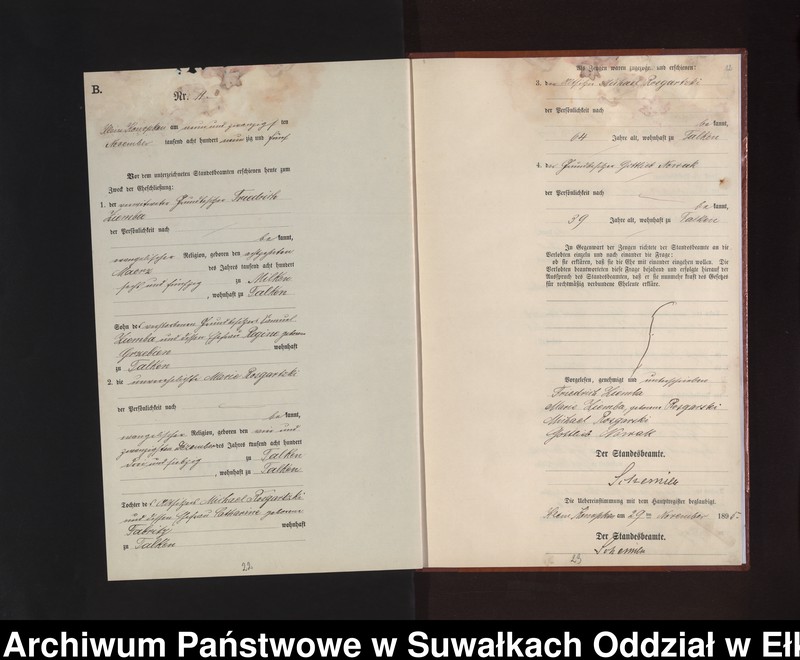 B.
Nr. 11.
Klein Konopken am neun und zwanzigsten
November tausend acht hundert neun zig und fünf
Vor dem unterzeichneten Standesbeamten erschienen heute zum
Zweck der Eheschließung:
1. der verwitwete Grundbesitzer Friedrich
Ziemba
der Persönlichkeit nach
be kannt,
evangelischer Religion, geboren den
Maerz des Jahres tausend acht hundert
sechs und fünfzig zu Milken
, wohnhaft zu Talken
Sohn des verstorbenen Grundbesitzers Samuel
Ziemba und dessen Ehefrau Regine geborne
Grzeben wohnhaft
zu Talken
2. die unverehelichte Marie Rosgartzki
der Persönlichkeit nach
be kannt,
evangelischer Religion, geboren den vier und
zwanzigsten Dezember des Jahres tausend acht hundert
drei und siebzig zu Talken
, wohnhaft zu Talken
Tochter des Altsitzers Michael Rosgartzki
und dessen Ehefrau Catharine geborene
Fabritz wohnhaft
zu Talken
22.
Als Zeugen waren zugezogen und erschienen:
3. der Altsitzer Michael Rosgartzki
der Persönlichkeit nach
be kannt,
64 Jahre alt, wohnhaft zu Talken
4. der Grundbesitzer Gottlieb Nowak
der Persönlichkeit nach
be kannt,
39 Jahre alt, wohnhaft zu Talken
In Gegenwart der Zeugen richtete der Standesbeamte an die
Verlobten einzeln und nach einander die Frage:
ob sie erklären, daß sie die Ehe mit einander eingehen wollen. Die
Verlobten beantworteten diese Frage bejahend und erfolgte hierauf der
Ausspruch des Standesbeamten, daß er sie nunmehr kraft des Gesetzes
für rechtmäßig verbundene Eheleute erkläre.
Vorgelesen, genehmigt und unterschrieben
Friedrich Ziemba
Marie Ziemba, geborene Rosgarski
Michael Rosgarski
Gottlieb Nowak
Der Standesbeamte.
Die Uebereinstimmung mit dem Hauptregister beglaubigt.
Klein Konopken am 29ten November 1895.
Der Standesbeamte.
23
Archiwum Państwowe w Suwałkach Oddział w Ełk